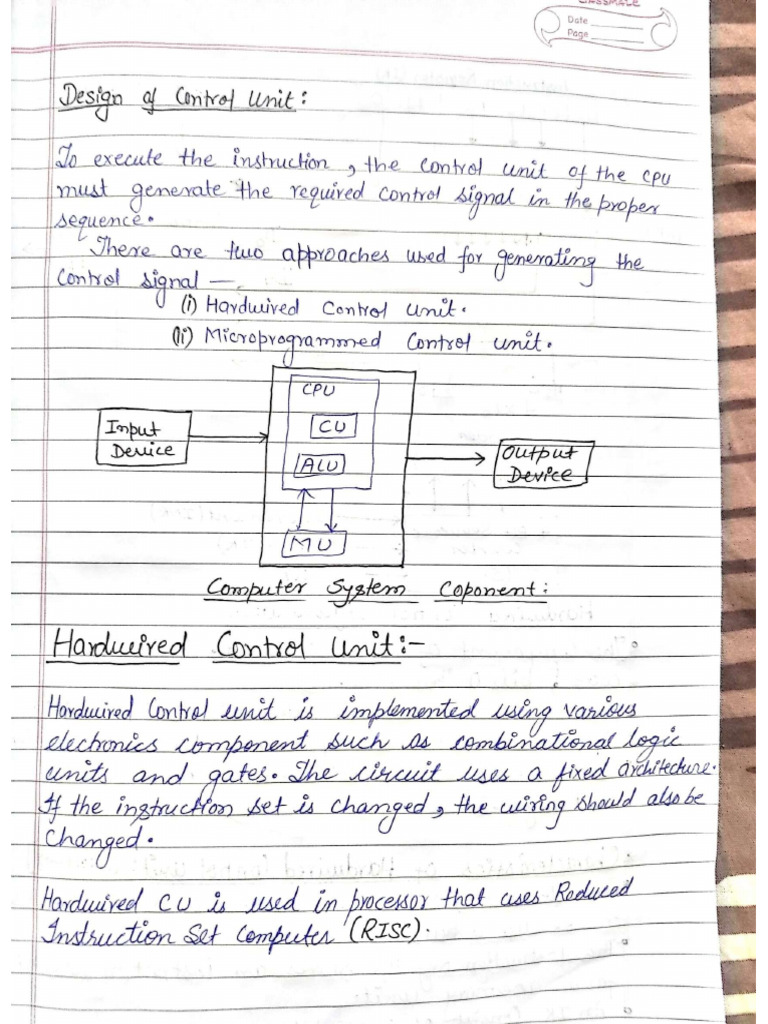 CLASSMATE
Date
Page
Design of Control Unit:
To execute the instruction, the control unit of the CPU
must generate the required control signal in the proper
sequence.
There are two approaches used for generating the
Control signal —
(i) Hardwired Control Unit.
(ii) Microprogrammed Control unit.
CPU
CU
Input
Device
ALU
Output
Device
MU
Computer System Coponent:
Hardwired Control Unit:-
Hardwired Control unit is implemented using various
electronics component such as combinational logic
units and gates. The circuit uses a fixed architecture.
If the instruction set is changed, the wiring should also be
changed.
Hardwired CU is used in processor that uses Reduced
Instruction Set Computer (RISC).